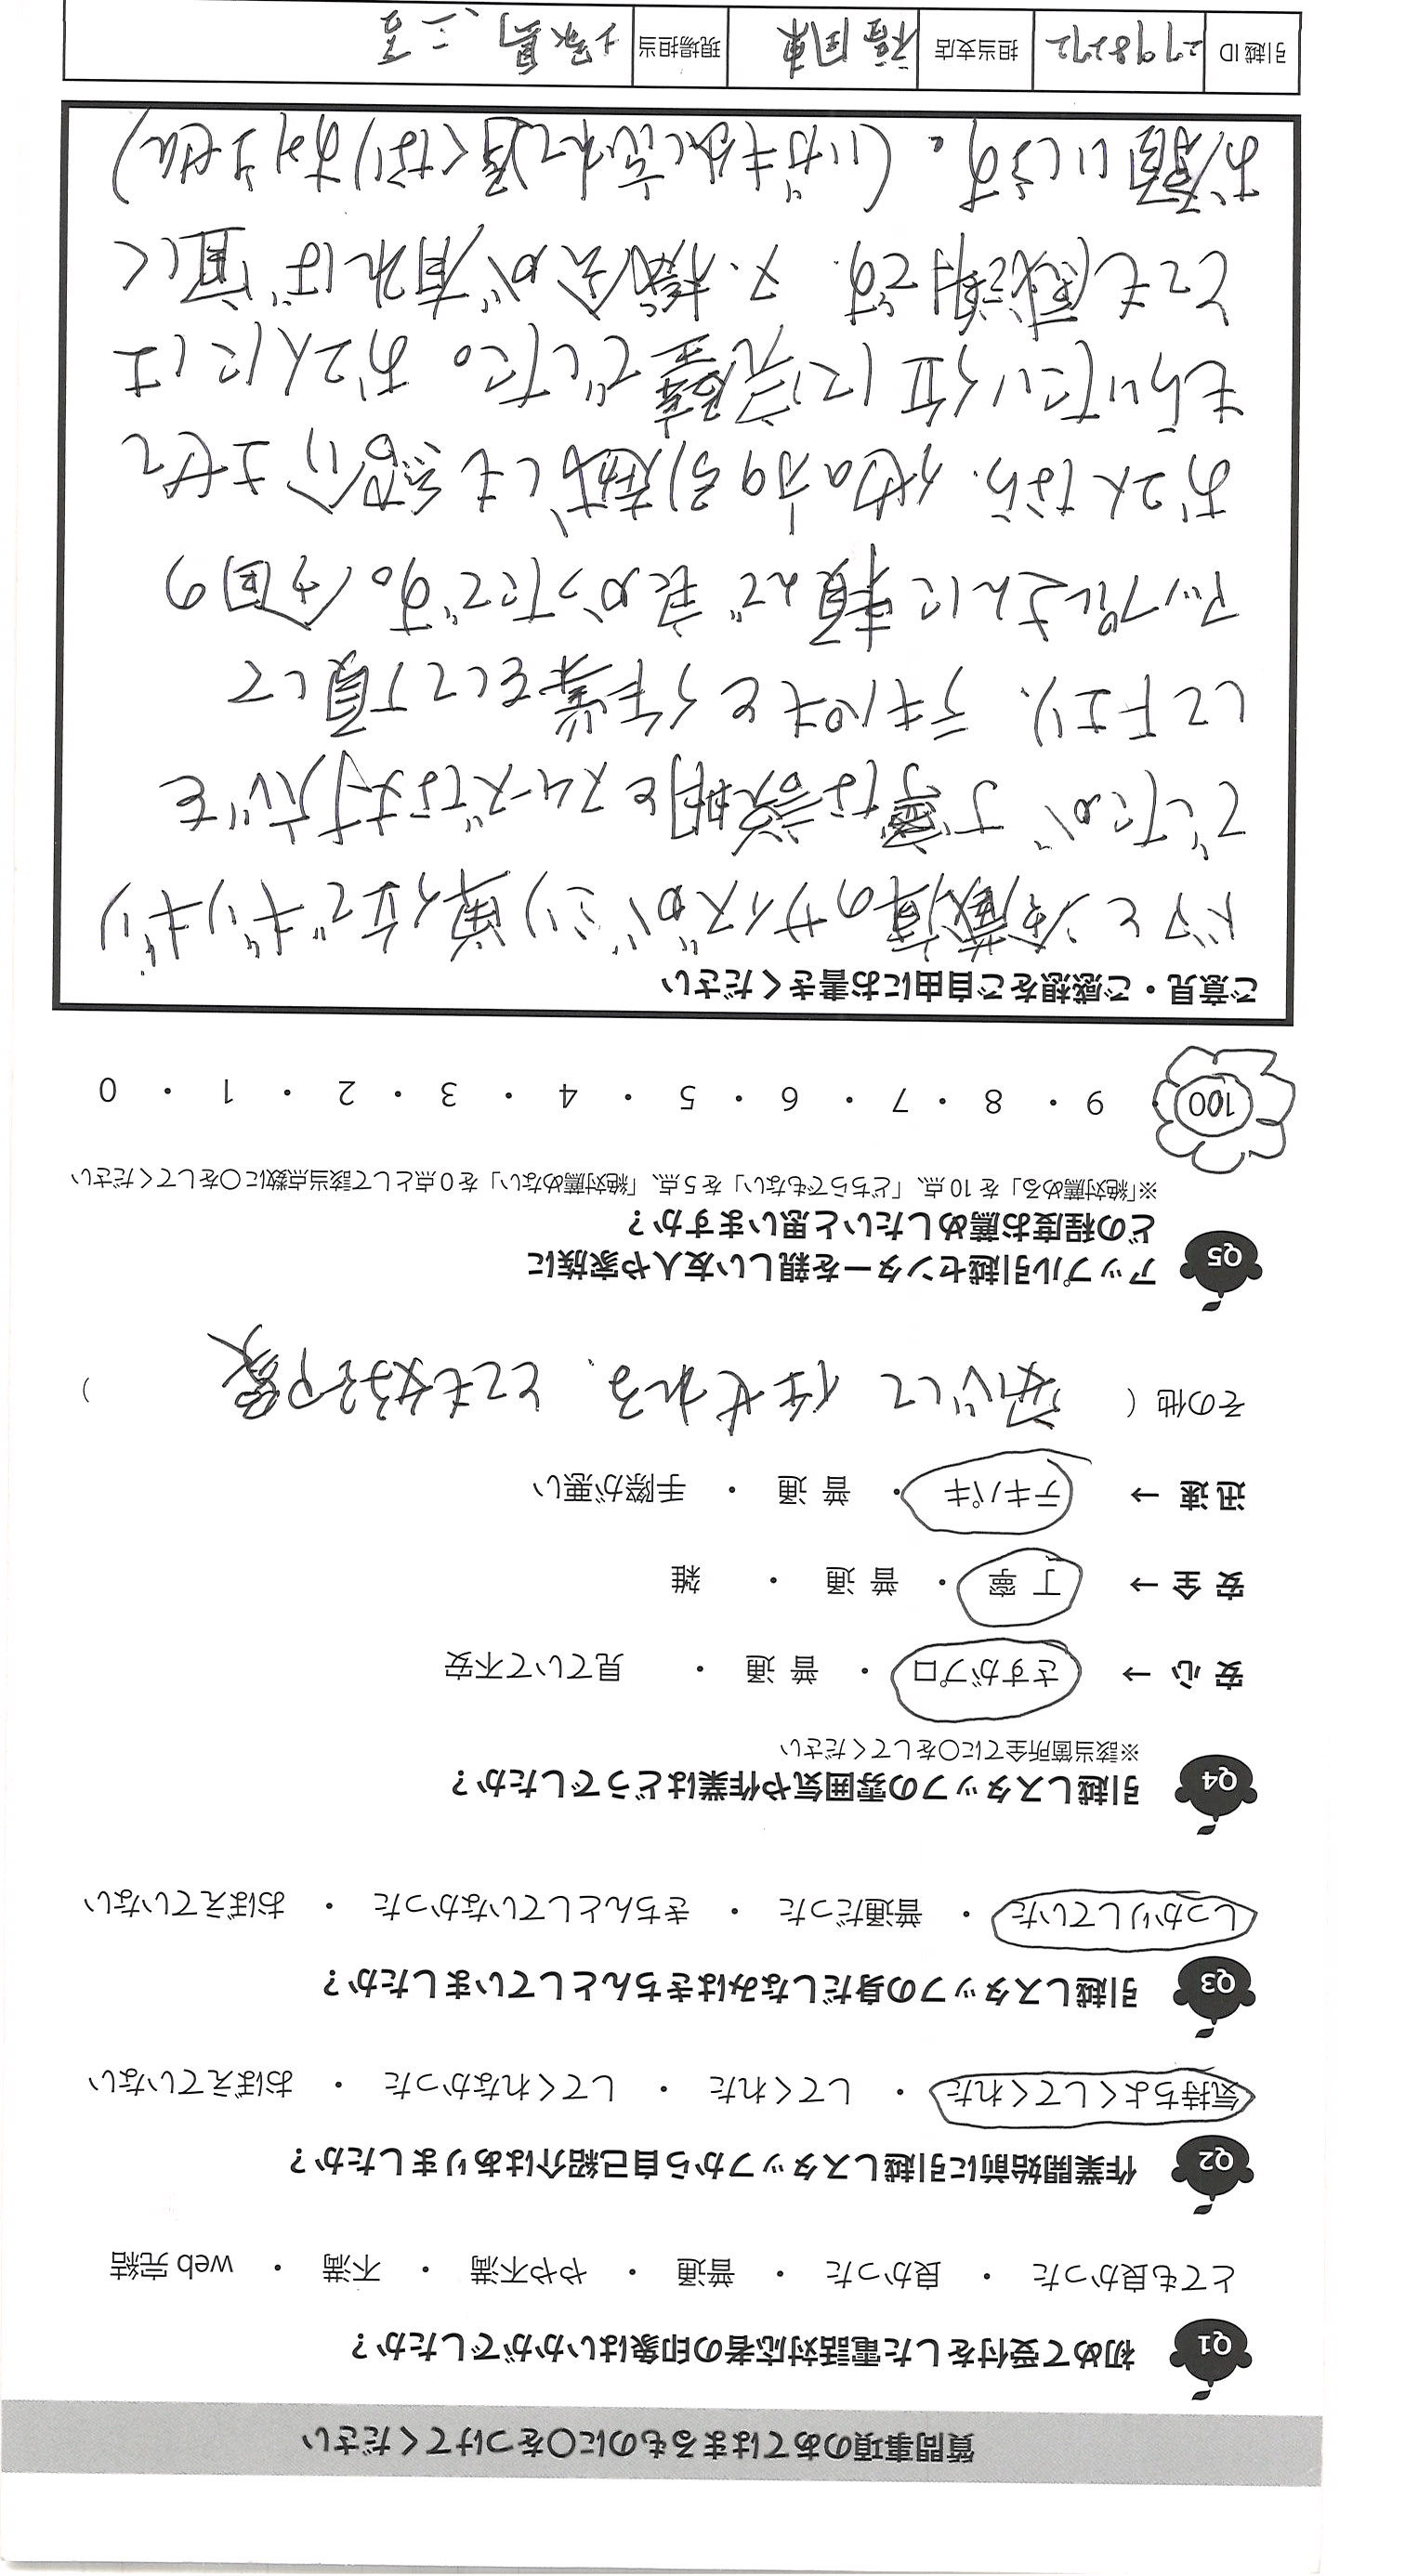 質問事項のあてはまるものに○をつけてください
Q1 初めて受付をした電話対応者の印象はいかがでしたか？
とても良かった ・ 良かった ・ 普通 ・ やや不満 ・ 不満 ・ web 完結
Q2 作業開始前に引越しスタッフから自己紹介はありましたか？
気持ちよくしてくれた ・ してくれた ・ してくれなかった ・ おぼえていない
Q3 引越しスタッフの身だしなみはきちんとしていましたか？
しっかりしていた ・ 普通だった ・ きちんとしていなかった ・ おぼえていない
Q4 引越しスタッフの雰囲気や作業はどうでしたか？
※該当箇所全てに○をしてください
安 心 → さすがプロ ・ 普 通 ・ 見ていて不安
安 全 → 丁 寧 ・ 普 通 ・ 雑
迅 速 → テキパキ ・ 普 通 ・ 手際が悪い
その他（ 安心して 任せれる、とても好印象 ）
Q5 アップル引越センターを親しい友人や家族に
どの程度お薦めしたいと思いますか？
※「絶対薦める」を 10 点、「どちらでもない」を 5 点、「絶対薦めない」を 0 点として該当点数に○をしてください
100 ・ 9 ・ 8 ・ 7 ・ 6 ・ 5 ・ 4 ・ 3 ・ 2 ・ 1 ・ 0
ご意見・ご感想をご自由にお書きください
ドアと冷蔵庫のサイズがミリ単位でギリギリ
でしたが、丁寧な説明とスムーズな対応を
して下さり、テキパキと作業をして頂して
アップルさんに頼んで良かったです。今回の
お2人なら、他の方の引越しも紹介させて
もらいたい位に完璧でした。お2人には
とても感謝です。又、機会が有れば宜しく
お願いします。（ハガキ出し忘れて遅くなりすみません）
引越 ID 2798272 担当支店 福岡東 現場担当